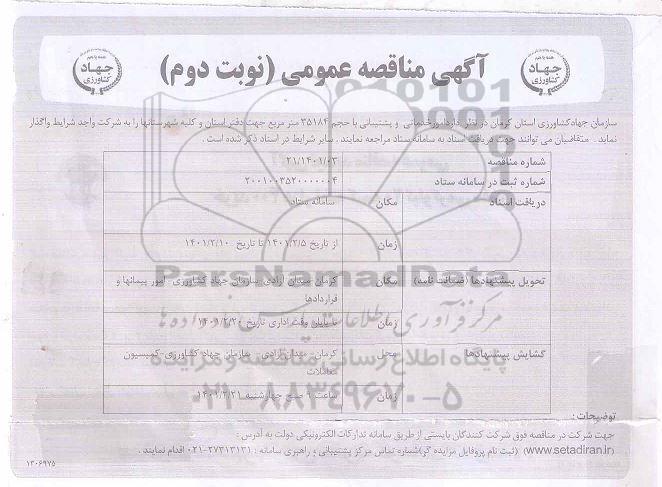 آگهی مناقصه عمومی (نوبت دوم)
جهاد کشاورزی
جهاد کشاورزی
سازمان جهادکشاورزی استان کرمان در نظر دارد امور خدماتی و پشتیبانی با حجم ۳۵۱۸۴ متر مربع جهت دفتر استان و کلیه شهرستانها را به شرکت واجد شرایط واگذار
نماید . متقاضیان می توانند جهت دریافت اسناد به سامانه ستاد مراجعه نمایند . سایر شرایط در اسناد ذکر شده است .
شماره مناقصه ۲۱/۱۴۰۱/۰۲
شماره ثبت در سامانه ستاد ۲۰۰۱۰۰۳۵۲۰۰۰۰۰۰۴
دریافت اسناد مکان سامانه ستاد
زمان از تاریخ ۱۴۰۱/۲/۵ تا تاریخ ۱۴۰۱/۲/۱۰
ParsNamadData
تحویل پیشنهادها (ضمانت نامه) مکان کرمان میدان آزادی سازمان جهاد کشاورزی امور پیمانها و
قراردادها
مرکز فرآوری اطلاعات پارس نماد داده ها
زمان تا پایان وقت اداری تاریخ ۱۴۰۱/۲/۲۰
گشایش پیشنهادها محل کرمان- میدان آزادی- سازمان جهاد کشاورزی-کمیسیون
معاملات
پایگاه اطلاع رسانی مناقصه و مزایده
زمان ساعت ۹ صبح چهارشنبه ۱۴۰۱/۲/۲۱
۰۲۱-۸۸۳۴۹۶۷۰-۵
توضیحات :
جهت شرکت در مناقصه فوق شرکت کنندگان بایستی از طریق سامانه تدارکات الکترونیکی دولت به آدرس :
(www.setadiran.ir) (ثبت نام پروفایل مزایده گر)شماره تماس مرکز پشتیبانی و راهبری سامانه : ۲۷۳۱۳۱۳۱-۰۲۱ اقدام نمایند .
۱۳۰۶۹۷۵